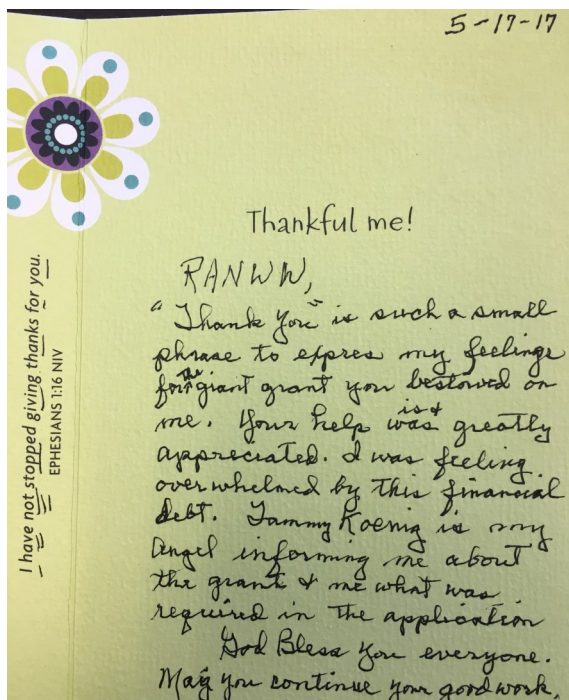 5-17-17
I have not stopped giving thanks for you.
EPHESIANS 1:16 NIV
Thankful me!
RANWW,
"Thank You" is such a small
phrase to expres my feelings
for the giant grant you bestowed on
me. Your help is & was greatly
appreciated. I was feeling
overwhelmed by this financial
debt. Tammy Koenig is my
angel informing me about
the grant & me what was
required in the application
God Bless You everyone.
May you continue your good work.